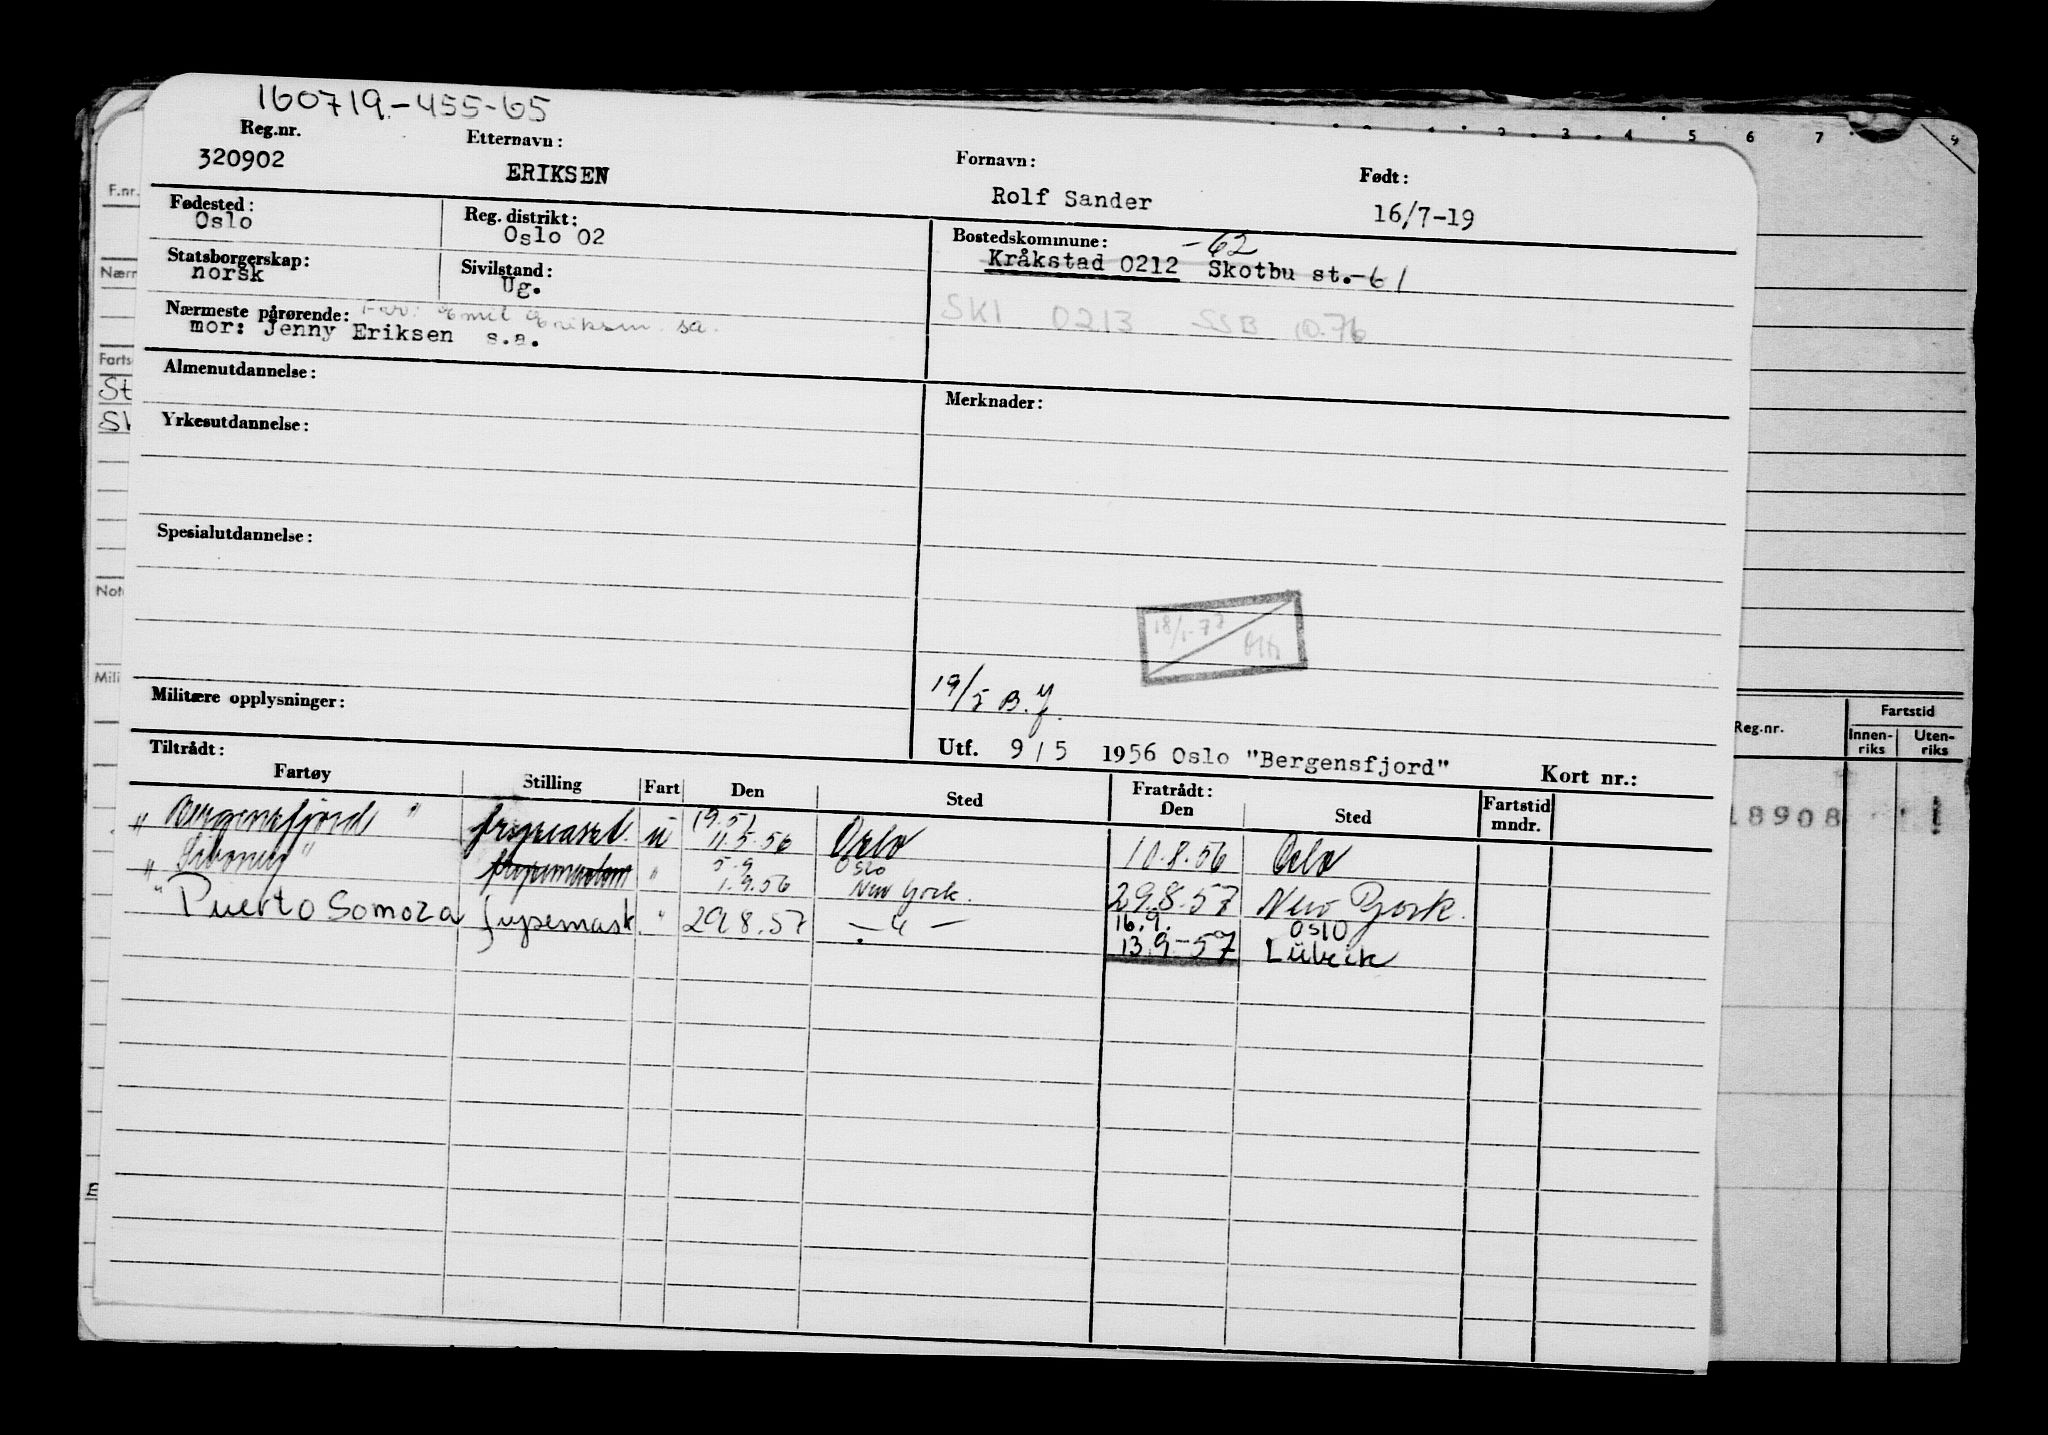 160719-455-65
Reg.nr. Etternavn: Fornavn: Født:
320902 ERIKSEN Rolf Sander 16/7-19
Fødested: Reg. distrikt: Bostedskommune: -62
Oslo Oslo 02 Kråkstad 0212 Skotbu st.-61
Statsborgerskap: Sivilstand:
norsk Ug.
SKI 0213 SSB 10.76
Nærmeste pårørende: Far: Emil Eriksen sa.
mor: Jenny Eriksen s.a.
Almenutdannelse: Merknader:
Yrkesutdannelse:
Spesialutdannelse:
18/1-77
19/5 B.J.
Militære opplysninger:
Utf. 9/5 1956 Oslo "Bergensfjord" Kort nr.:
Tiltrådt: Fratrådt:
Fartøy Stilling Fart Den Sted Den Sted Fartstid mndr.
19.5
"Bergensfjord" u 11.5.56 Oslo 10.8.56 Oslo
5.9 Oslo
" " " 1.9.56 New York. 29.8.57 New York.
16.9. Oslo
" Puerto Somoza " 29.8.57 — " — 13.9-57 Lübeck
F.nr.
Nærm
Farts
St
Sk
Note
Mili
E
1 2 3 4 5 6 7 9
Reg.nr. Fartstid
Innen-riks Uten-riks
18908 1